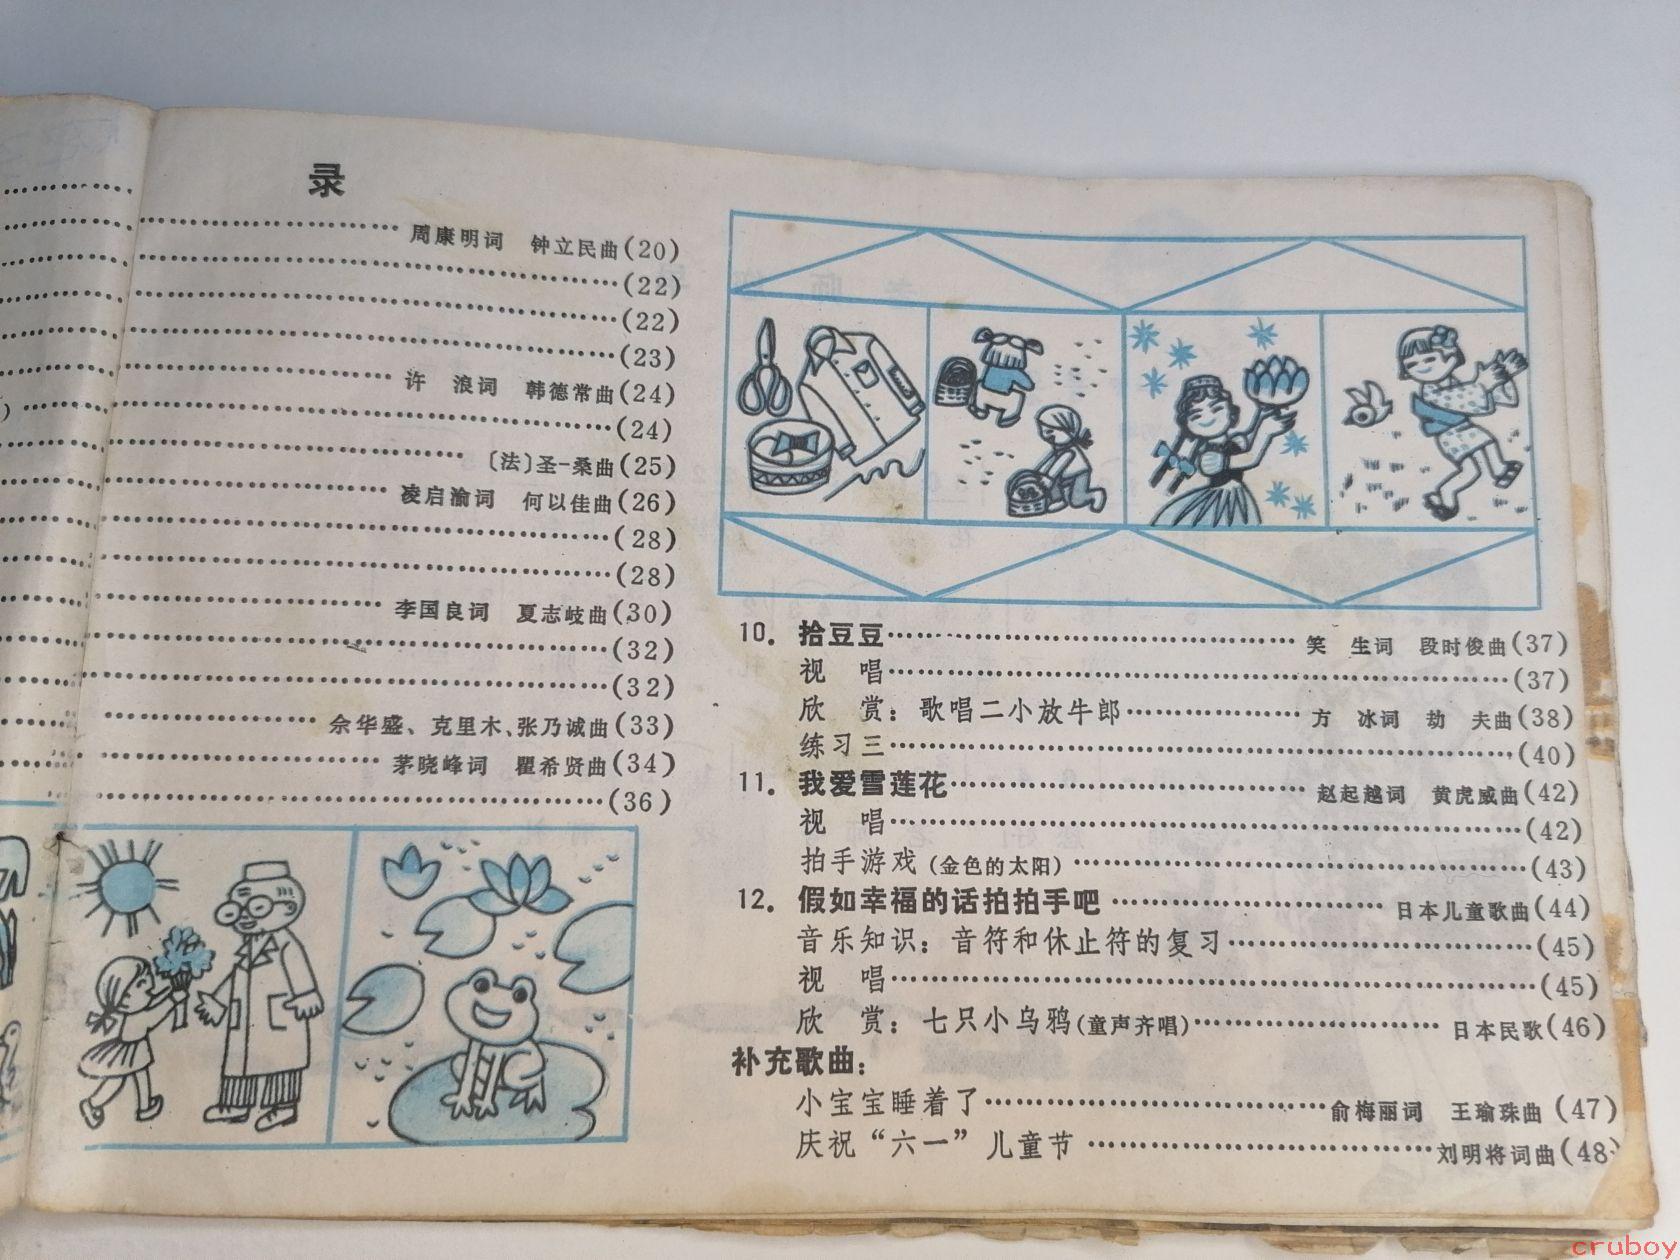 录
周康明词 钟立民曲(20)
(22)
(22)
(23)
许 浪词 韩德常曲(24)
)
(24)
〔法〕圣-桑曲(25)
凌启渝词 何以佳曲(26)
(28)
(28)
李国良词 夏志岐曲(30)
(32)
(32)
佘华盛、克里木、张乃诚曲(33)
茅晓峰词 瞿希贤曲(34)
(36)
10. 拾豆豆 笑 生词 段时俊曲(37)
视 唱(37)
欣 赏：歌唱二小放牛郎 方 冰词 劫 夫曲(38)
练习三(40)
11. 我爱雪莲花 赵起越词 黄虎威曲(42)
视 唱(42)
拍手游戏(金色的太阳)(43)
12. 假如幸福的话拍拍手吧 日本儿童歌曲(44)
音乐知识：音符和休止符的复习(45)
视 唱(45)
欣 赏：七只小乌鸦(童声齐唱) 日本民歌(46)
补充歌曲：
小宝宝睡着了 俞梅丽词 王瑜珠曲(47)
庆祝“六一”儿童节 刘明将词曲(48)
cruboy